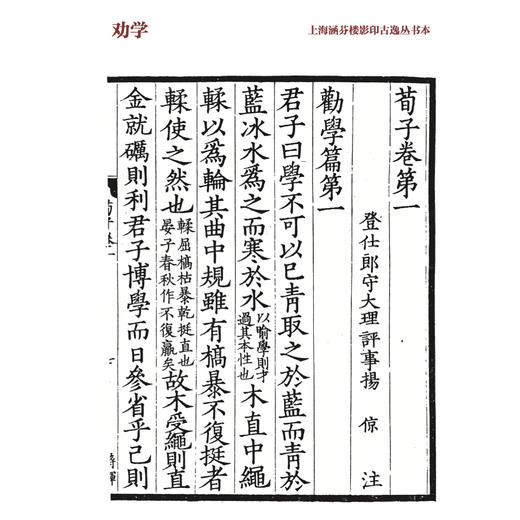 劝学
上海涵芬楼影印古逸丛书本
荀子卷第一
登仕郎守大理評事揚倞注
勸學篇第一
君子曰學不可以已青取之於藍而青於
藍冰水爲之而寒於水以喻學則才過其本性也木直中繩
輮以爲輪其曲中規雖有槁暴不復挺者
輮使之然也輮屈槁枯暴乾挺直也晏子春秋作不復贏矣故木受繩則直
金就礪則利君子博學而日參省乎己則